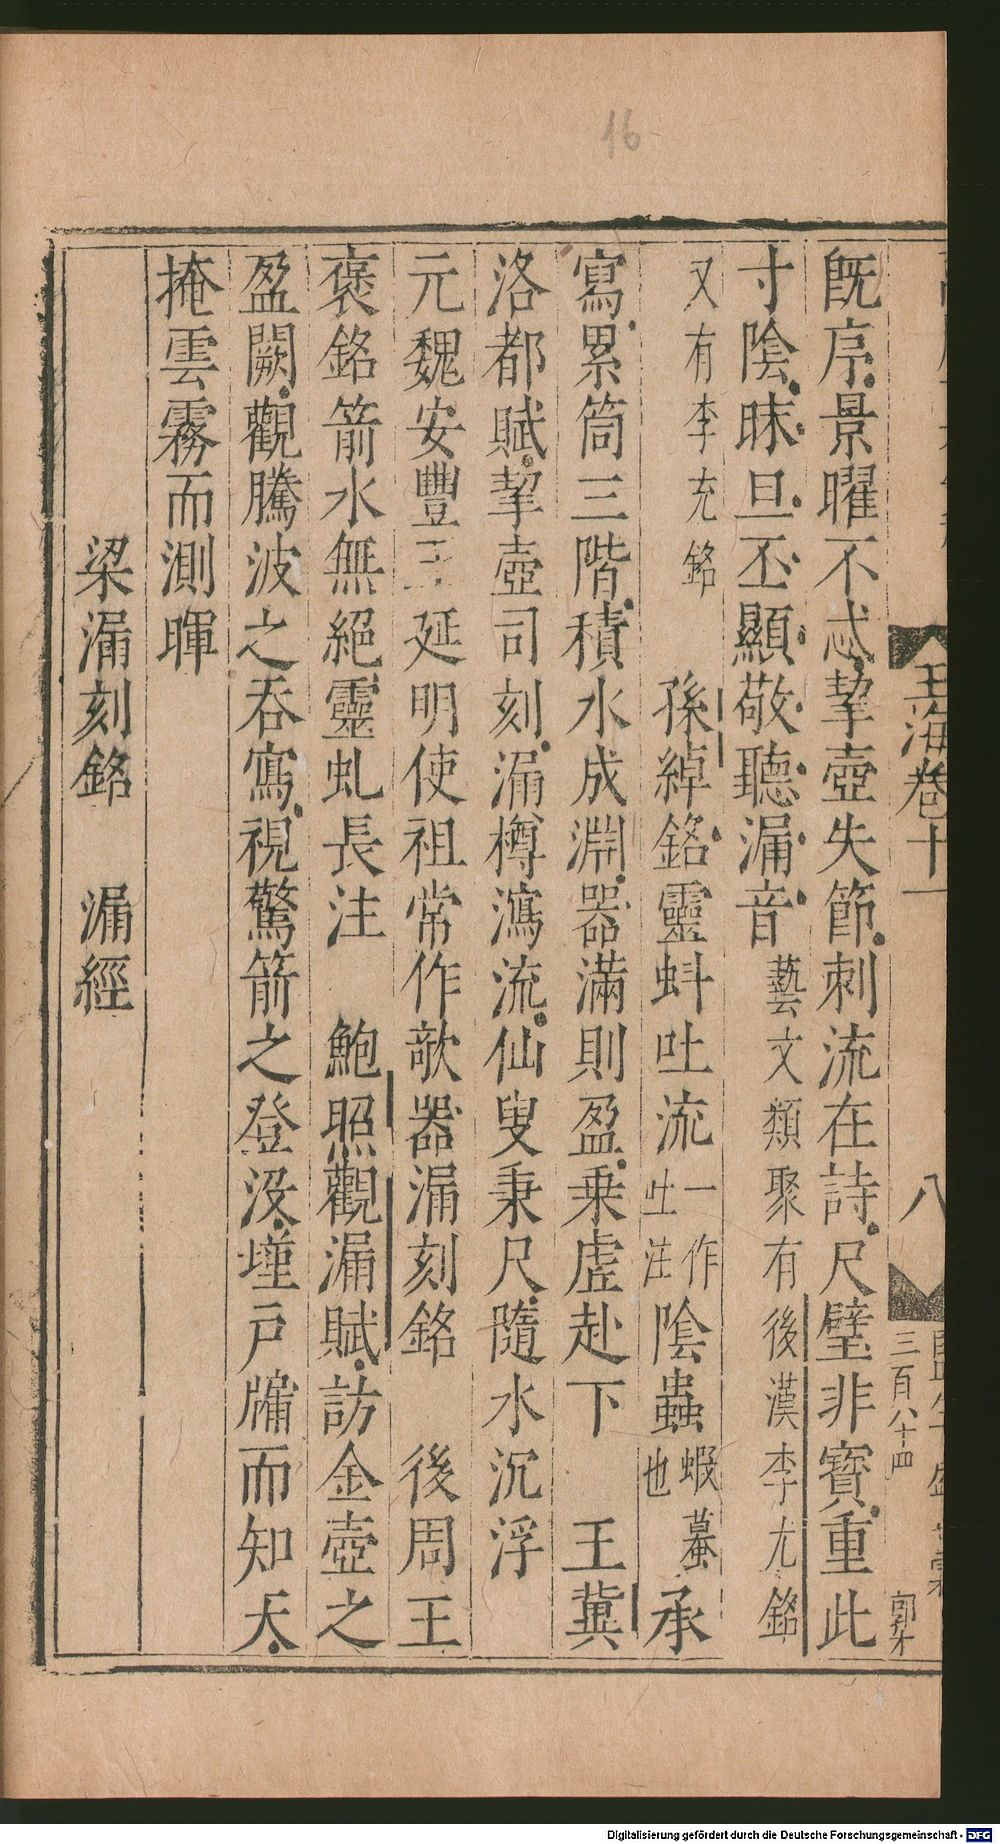 16
玉海卷十一
八
三百八十四
郭才
既序景曜不忒挈壺失節刺流在詩尺璧非寶重此
寸陰昧旦丕顯敬聽漏音藝文類聚有後漢李尤銘
又有李充銘　孫綽銘靈蚪吐流一作吐注陰蟲蝦蟇也承
寫累筒三階積水成淵器滿則盈乗虛赴下　王冀
洛都賦挈壺司刻漏樽瀉流仙叟秉尺隨水沉浮
元魏安豐王延明使祖常作欹器漏刻銘　後周王
褒銘箭水無絕靈虬長注　鮑照觀漏賦訪金壺之
盈闕觀騰波之吞寫視驚箭之登没墐戶牖而知天
掩雲霧而測暉
梁漏刻銘　漏經
Digitalisierung gefördert durch die Deutsche Forschungsgemeinschaft - DFG